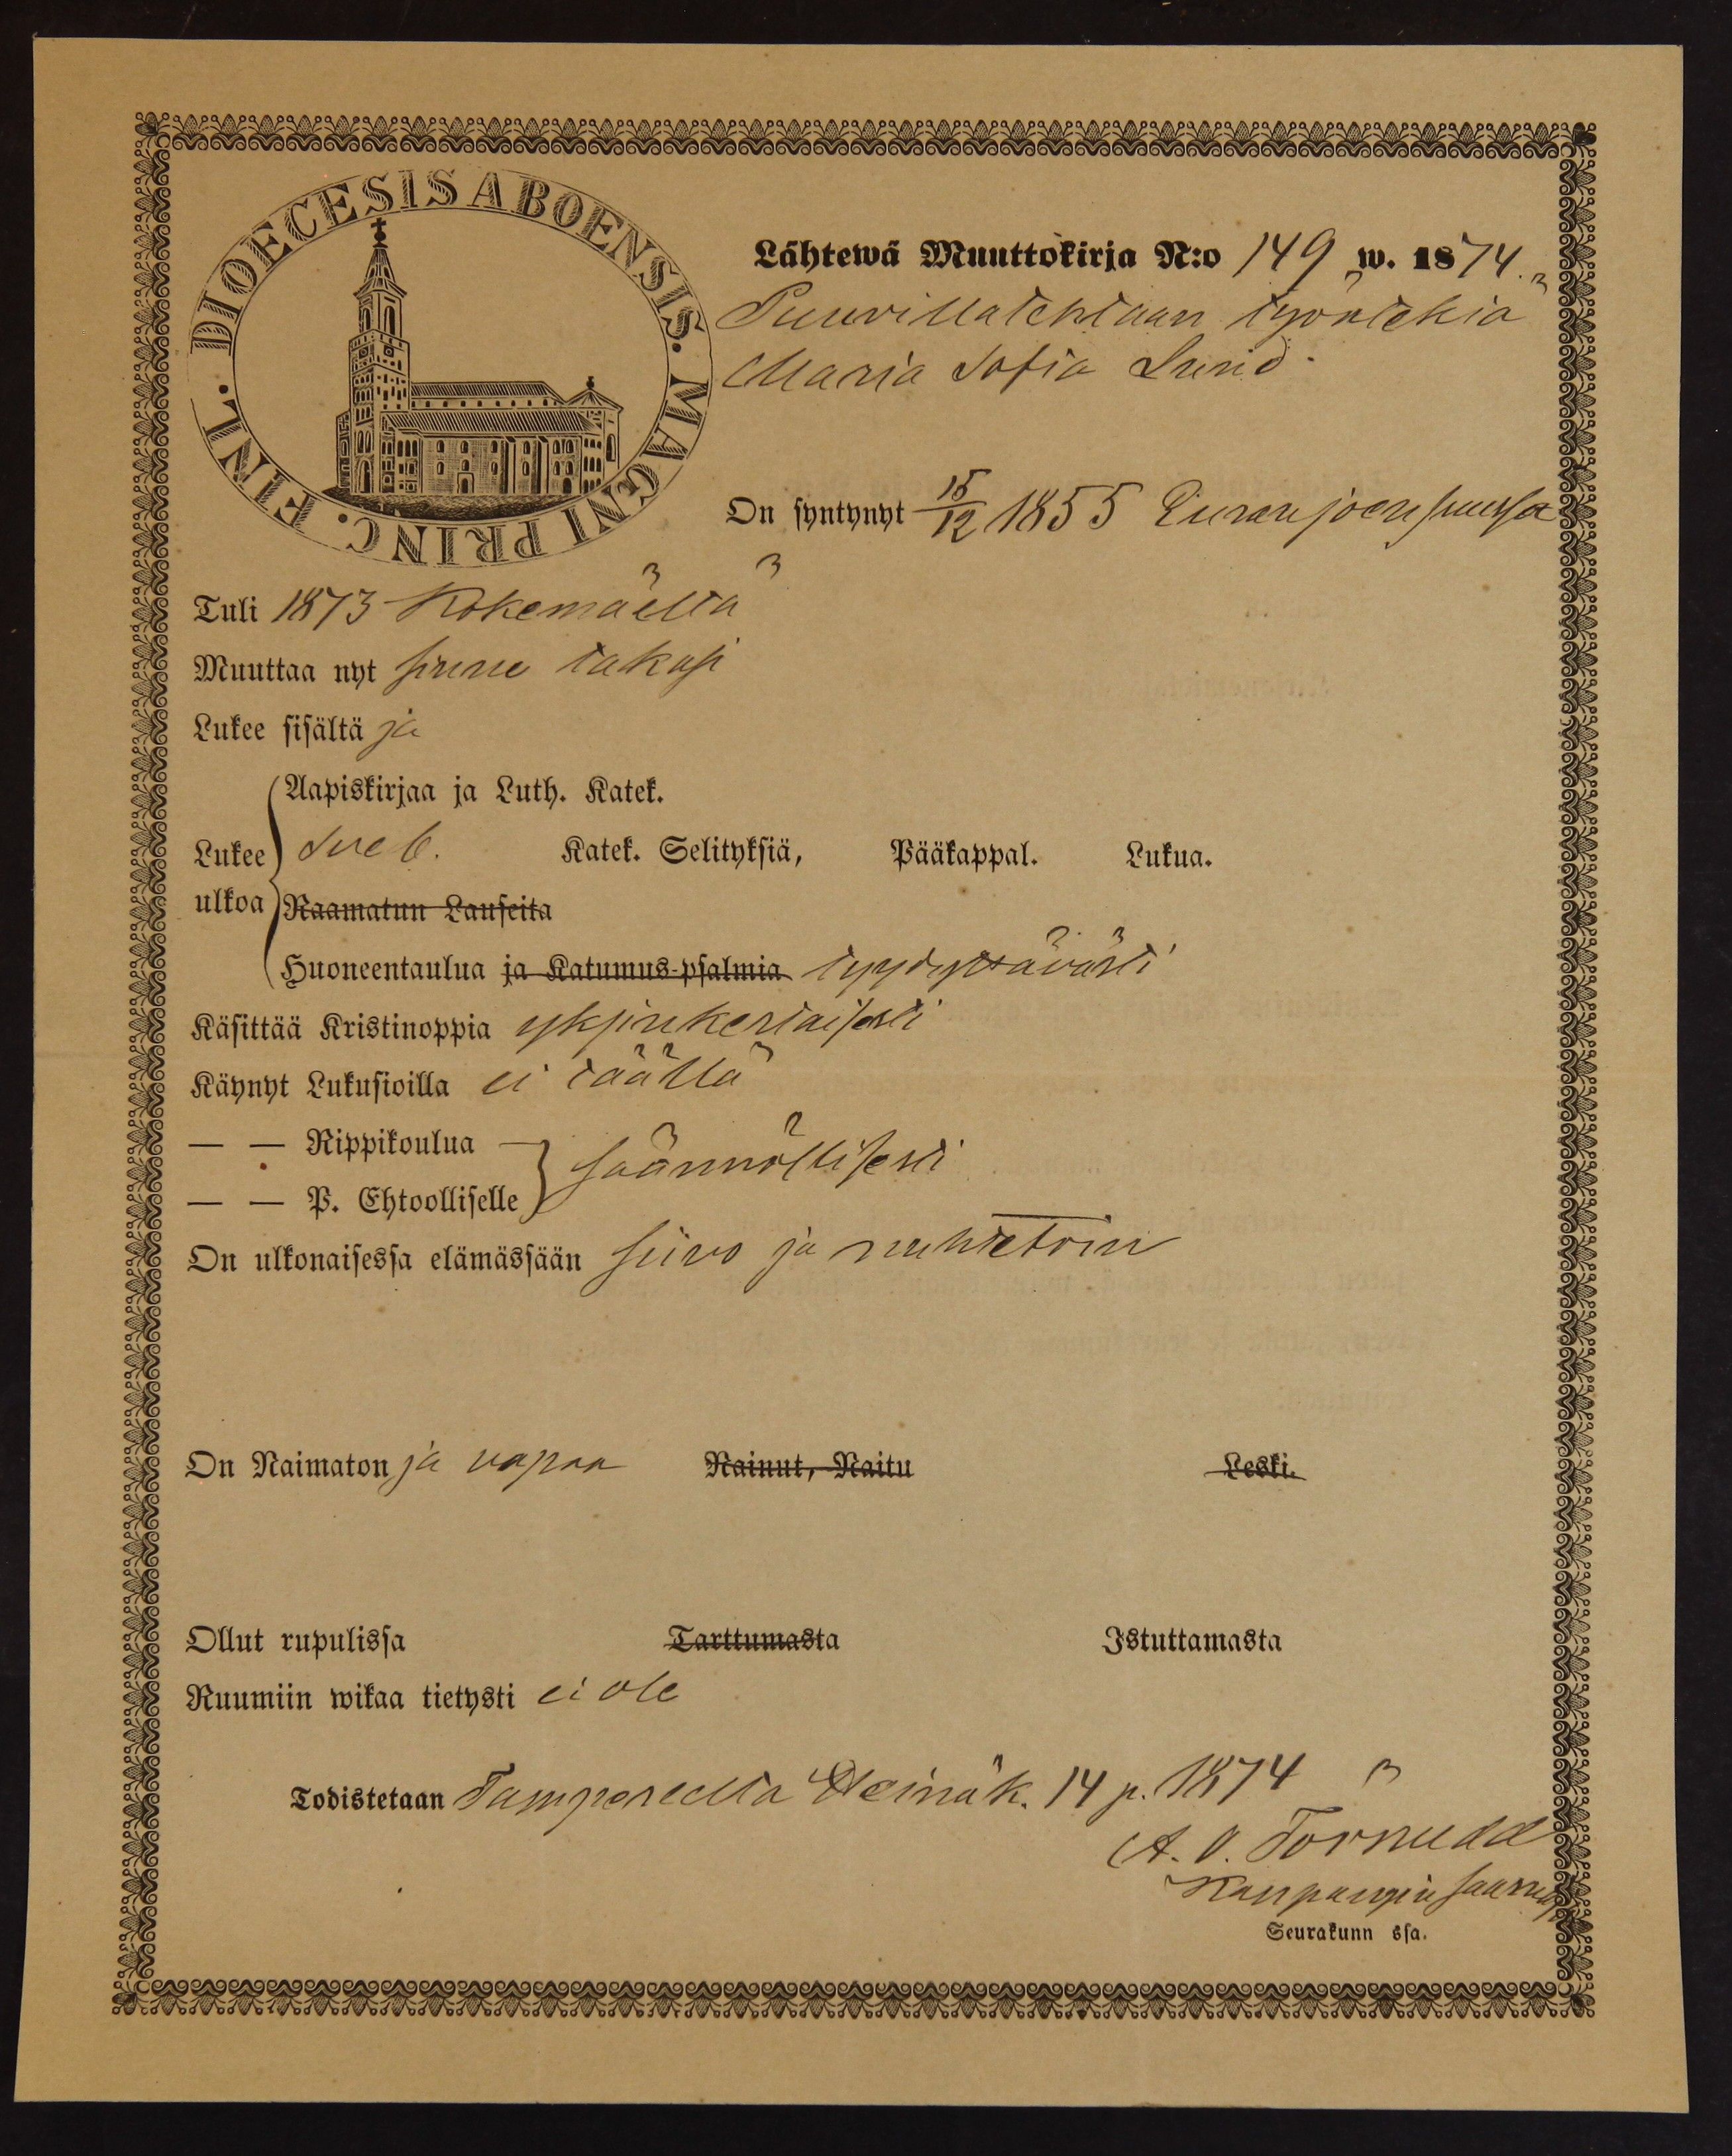 DIOECESIS ABOENSIS. MAGNI PRINC. FINL.
Lähtewä Muuttokirja N:o 149 w. 1874.
Puuvillatehtaan työntekiä
Maria Sofia Lund
On syntynyt 15/12 1855 Euranjoensuussa
Tuli 1873 Kokemäeltä
Muuttaa nyt sinne takasi
Lukee sisältä ja
Aapiskirjaa ja Luth. Katek.
Lukee ulkoa Sveb. Katek. Selityksiä, Pääkappal. Lukua.
Raamatun Lauseita
Huoneentaulua ja Katumus-psalmia tyydyttävästi
Käsittää Kristinoppia yksinkertaisesti
Käynyt Lukusioilla ei täällä
— — Rippikoulua —
— — P. Ehtoolliselle säännöllisesti
On ulkonaisessa elämässään siivo ja nuhtetoin
On Naimaton ja vapaa Nainut, Naitu Leski.
Ollut rupulissa Tarttumasta Istuttamasta
Ruumiin wikaa tietysti ei ole
Todistetaan Tampereella Heinäk. 14 p. 1874
A. O. Törnudd
Kaupungin saarn.
Seurakunn ssa.